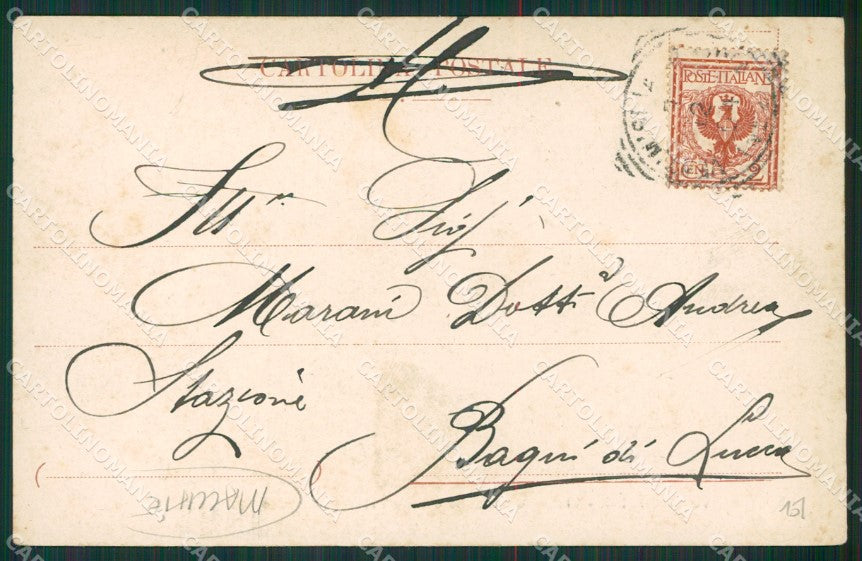 CARTOLINA POSTALE
POSTE·ITALIANE
Ill.mo Sig.
Marani Dott. Andrea
Stazione
Bagni di Lucca
CARTOLINOMANIA